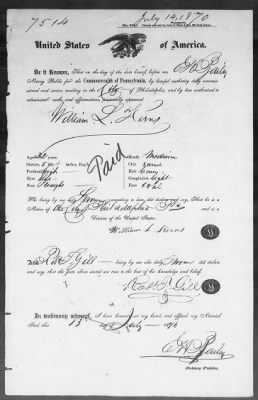 7514
July 14, 1870
United States of America.
Be it Known, That on the day of the date hereof before me
Notary Public for the Commonwealth of Pennsylvania, by lawful authority duly commissioned
and sworn, residing in the City of Philadelphia, and by law authorized to
administer oaths and affirmations, personally appeared
William L. Kerns
Paid
Mouth Medium
Chin round
Hair
Complexion light
Face oval
who being by me duly Sworn according to law, did depose and say, That he is a
Native of the City of Philadelphia Pa and a
Citizen of the United States.
William L. Kerns
And R. T. Gill being by me also duly Sworn did depose
and say, that the facts above stated are true to the best of his knowledge and belief.
Robt T. Gill
In testimony whereof, I have hereunto set my hand, and affixed my Notarial
Seal, this 13 July 1870
Notary Public.